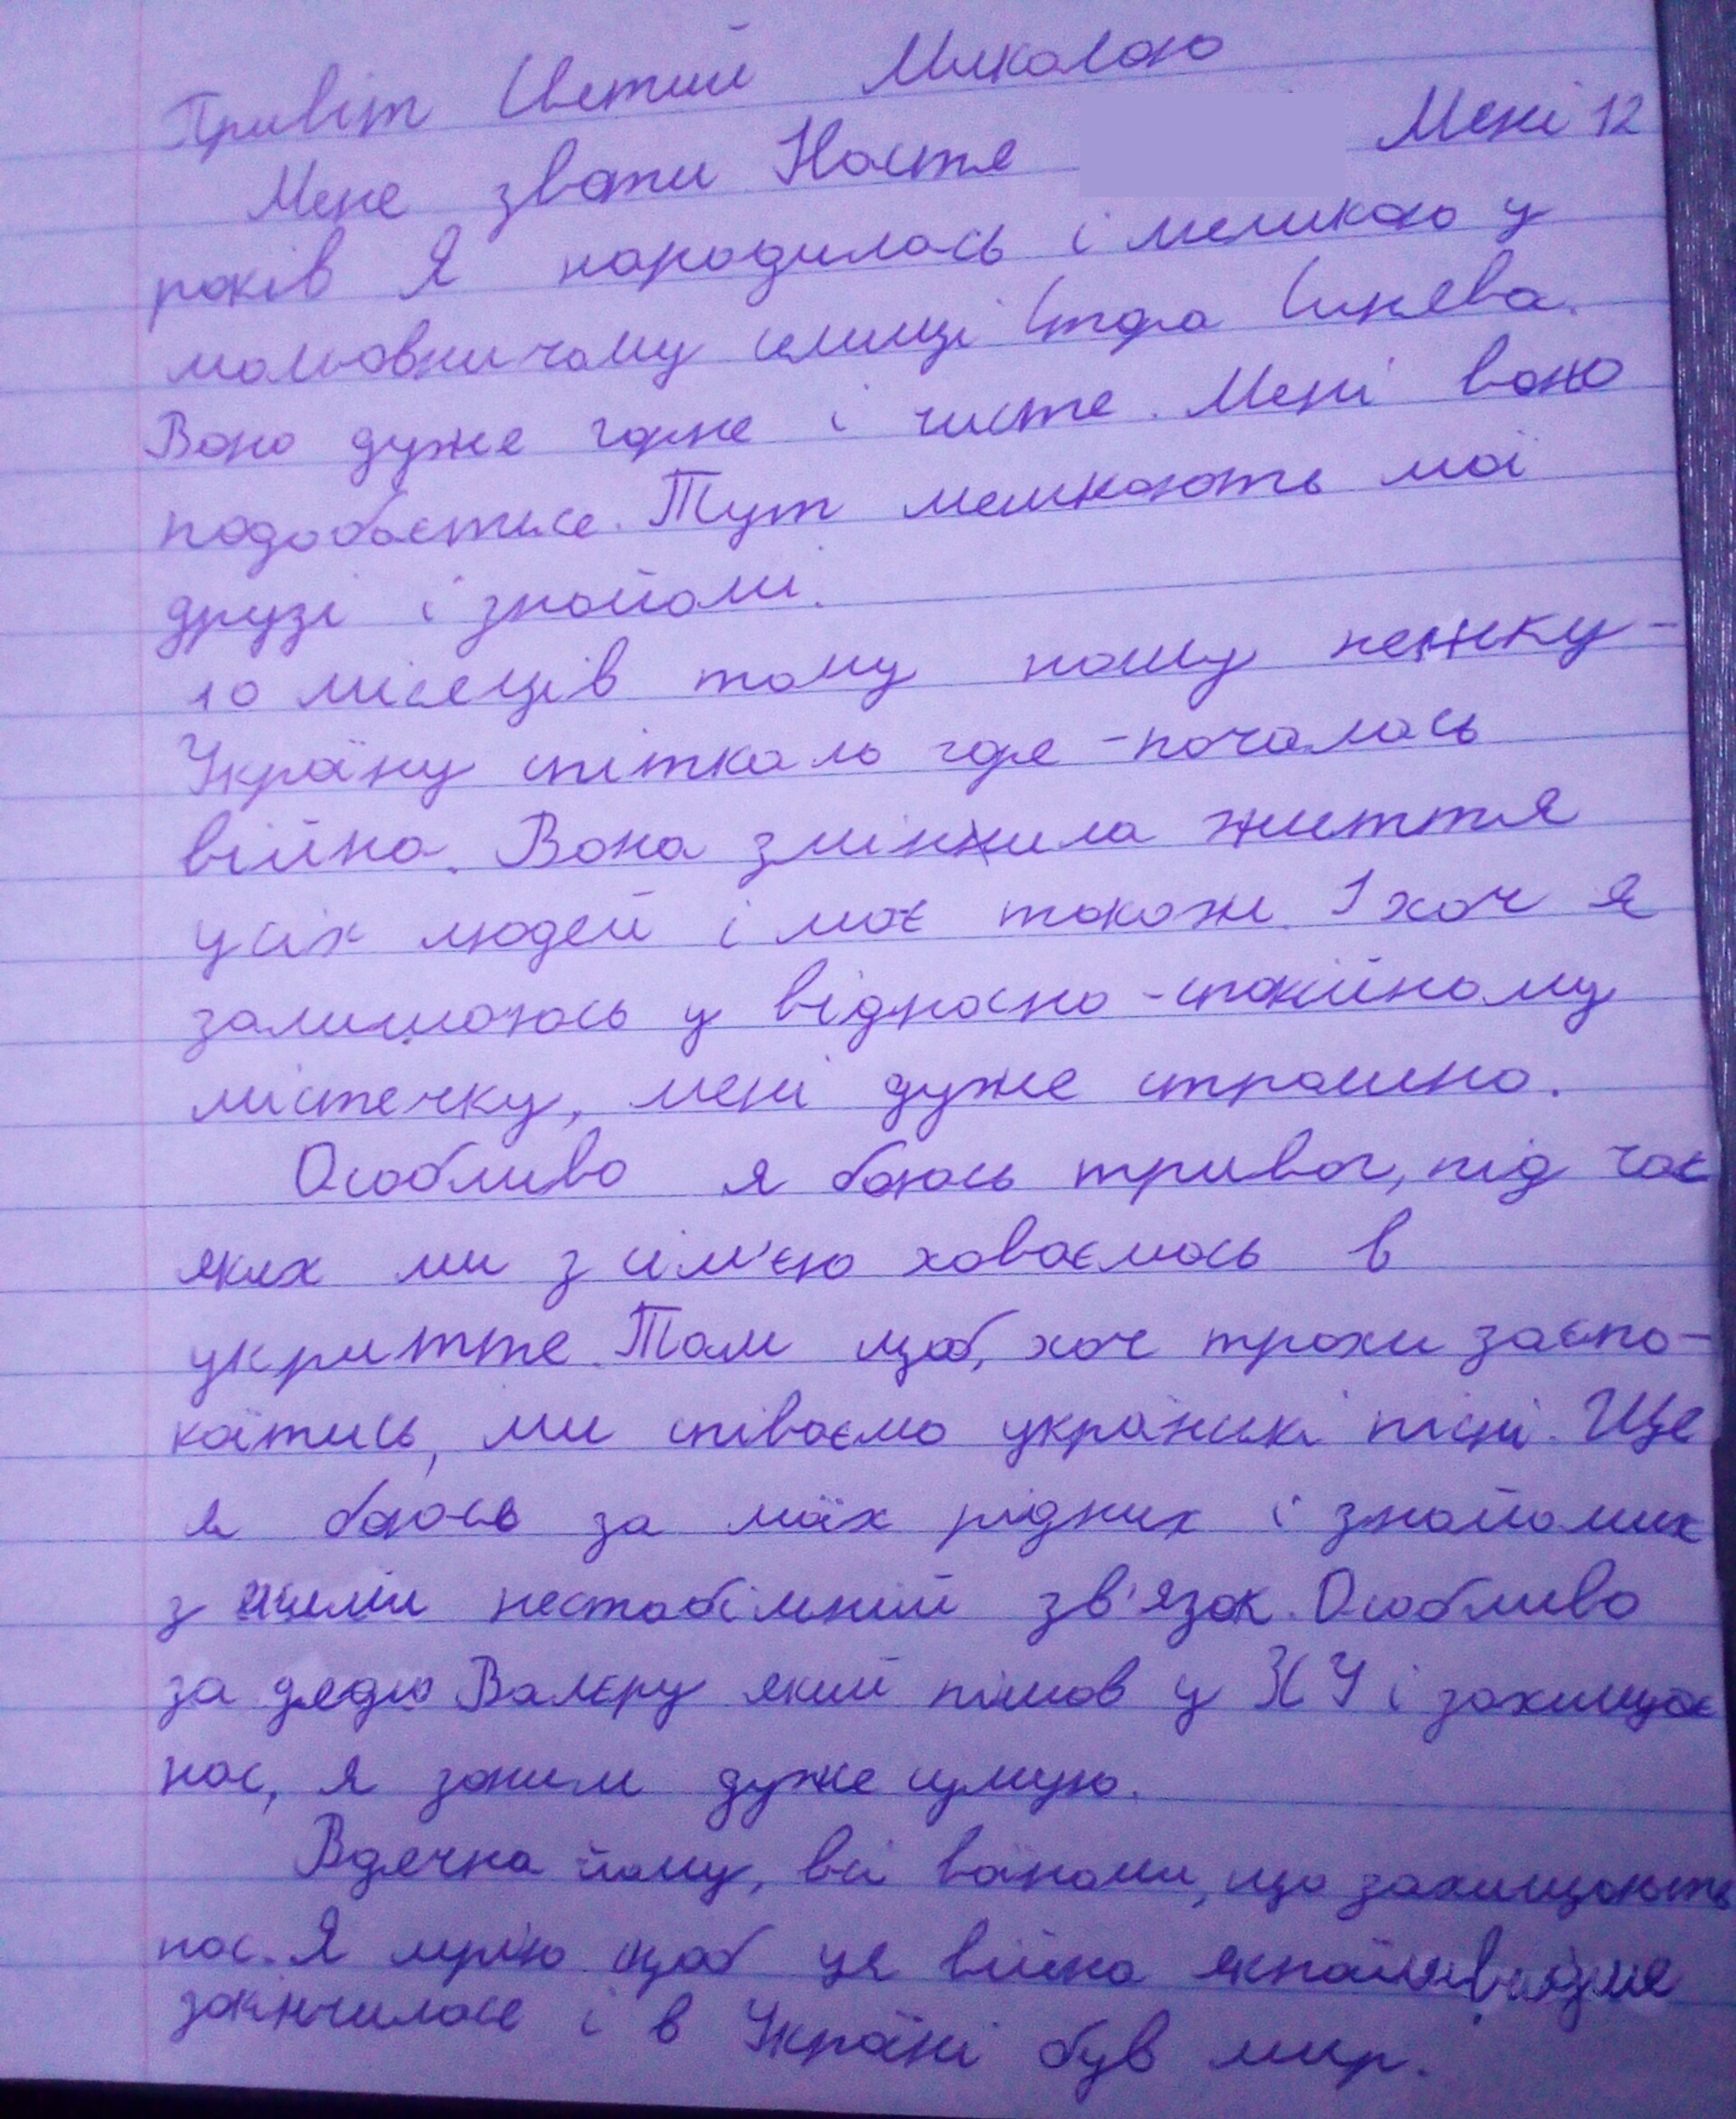 Привіт Святий Миколаю
Мене звати Настя Мені 12
років Я народилась і мешкаю у
мальовничому селищі Стара Синява.
Воно дуже гарне і чисте. Мені воно
подобається. Тут мешкають мої
друзі і знайомі.
10 місяців тому нашу неньку-
Україну спіткало горе - почалась
війна. Вона змінила життя
усіх людей і моє також. І хоч я
залишаюсь у відносно-спокійному
містечку, мені дуже страшно.
Особливо я боюсь тривог, під час
яких ми з сім'єю ховаємось в
укриття. Там щоб, хоч трохи заспо-
коїтись, ми співаємо українські пісні. Ще
я боюсь за моїх рідних і знайомих
з якими нестабільний зв'язок. Особливо
за дядю Валєру який пішов у ЗСУ і захищає
нас, я за ним дуже сумую.
Вдячна йому, всі воїнами, що захищають
нас. Я мрію щоб ця війна якнайшвидше
закінчилася і в Україні був мир.